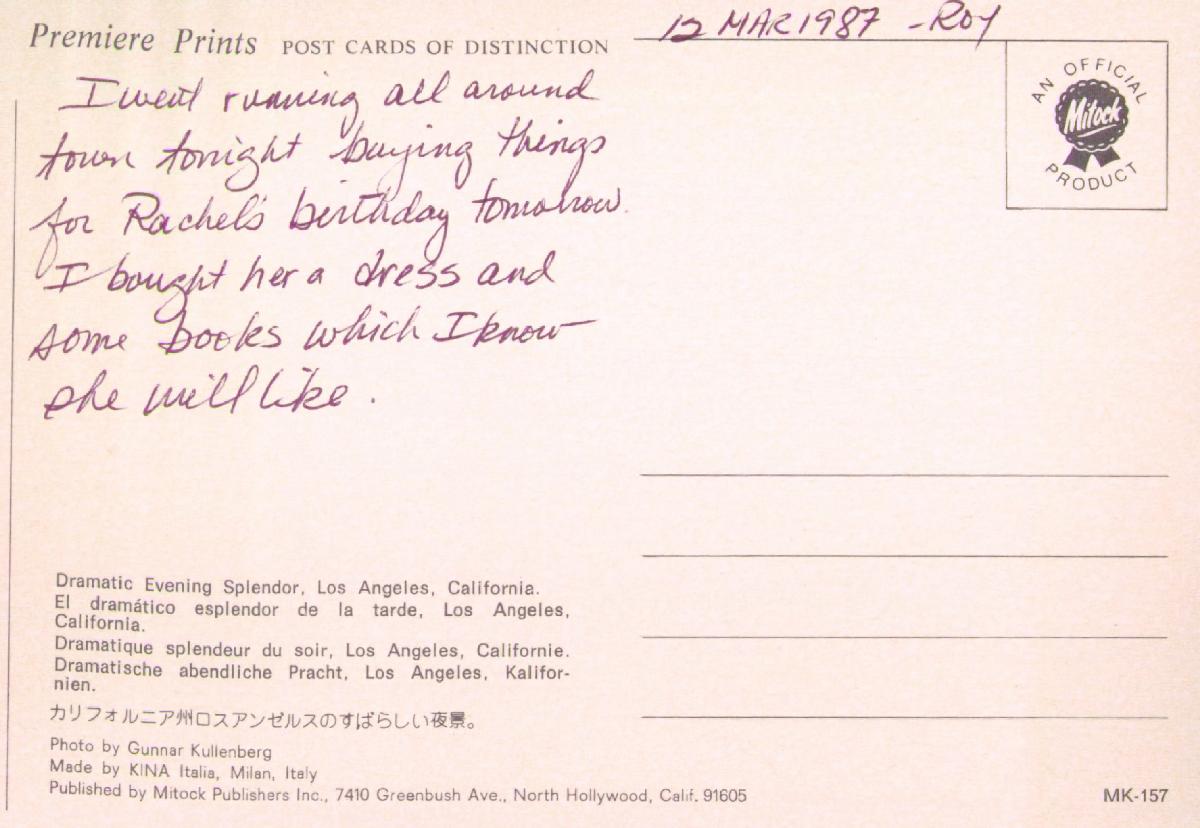 12 MAR 1987 -ROY
Premiere Prints POST CARDS OF DISTINCTION
I went running all around
town tonight buying things
for Rachel's birthday tomorrow.
I bought her a dress and
some books which I know
she will like.
AN OFFICIAL
Mitock
PRODUCT
Dramatic Evening Splendor, Los Angeles, California.
El dramático esplendor de la tarde, Los Angeles,
California.
Dramatique splendeur du soir, Los Angeles, Californie.
Dramatische abendliche Pracht, Los Angeles, Kalifor-
nien.
カリフォルニア州ロスアンゼルスのすばらしい夜景。
Photo by Gunnar Kullenberg
Made by KINA Italia, Milan, Italy
Published by Mitock Publishers Inc., 7410 Greenbush Ave., North Hollywood, Calif. 91605
MK-157